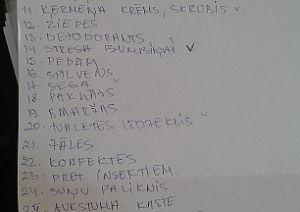 11. ĶERMEŅA KRĒMS, SKRUBIS
12. ZIEDES
13. DEZODORANTS
14. STRESA BUMBIŅAI
15. PĒDĀM
16. SPILVENS
17. SEGA
18. PAKLĀJS
19. SMARŽAS
20. TUALETES LĪDZEKLIS
21. ZĀLES
22. KONFEKTES
23. PRET INSEKTIEM
24. SUŅU PALIKNIS
25. AUKSTUMA KASTE